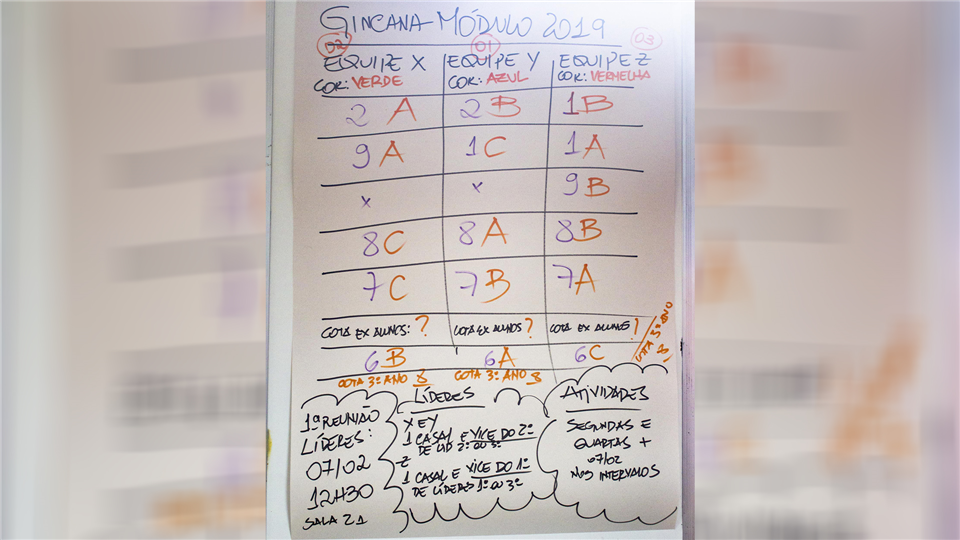 GINCANA MÓDULO 2019
02 01 03
EQUIPE X EQUIPE Y EQUIPE Z
COR: VERDE COR: AZUL COR: VERMELHA
2 A 2 B 1 B
9 A 1 C 1 A
x x 9 B
8 C 8 A 8 B
7 C 7 B 7 A
COTA EX ALUNOS: ? COTA EX ALUNOS ? COTA EX ALUNOS ?
6 B 6 A 6 C
COTA 3º ANO 8 COTA 3º ANO 8 COTA 3º ANO 8
1ª REUNIÃO
LÍDERES:
07/02
12H30
SALA 21
LÍDERES
X E Y
1 CASAL E VICE DO 2º
DE LID 2º OU 3º
Z
1 CASAL E VICE DO 1º
DE LÍDERES 1º OU 3º
ATIVIDADES
SEGUNDAS E
QUARTAS +
07/02
NOS INTERVALOS